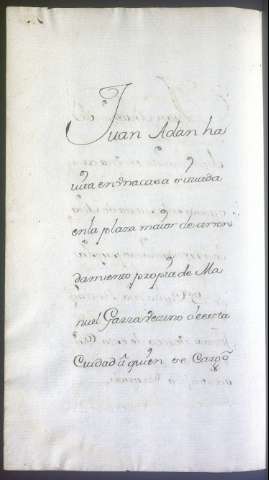 Juan Adan ha
uita en vna casa situada
en la plaza maior de arren
damiento propia de Ma
nuel Garza vezino de esta
Ciudad â quien se Cargò